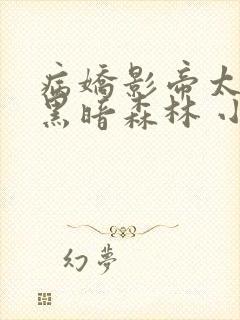 病嬌影帝太
黑暗森林 小
幻夢